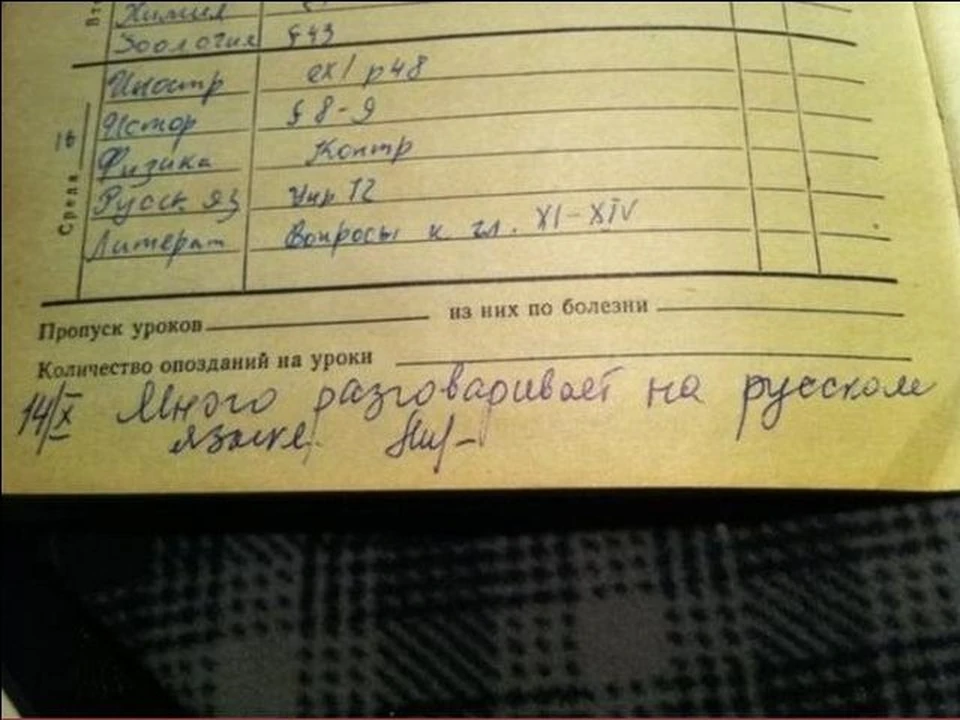 Вт
Химия
Зоология §43
Иностр ex1 p48
16
Истор § 8-9
Физика Контр
Среда
Русск. яз Упр 12
Литерат Вопросы к гл. XI-XIV
Пропуск уроков из них по болезни
Количество опозданий на уроки
14/X Много разговаривает на русском
языке.